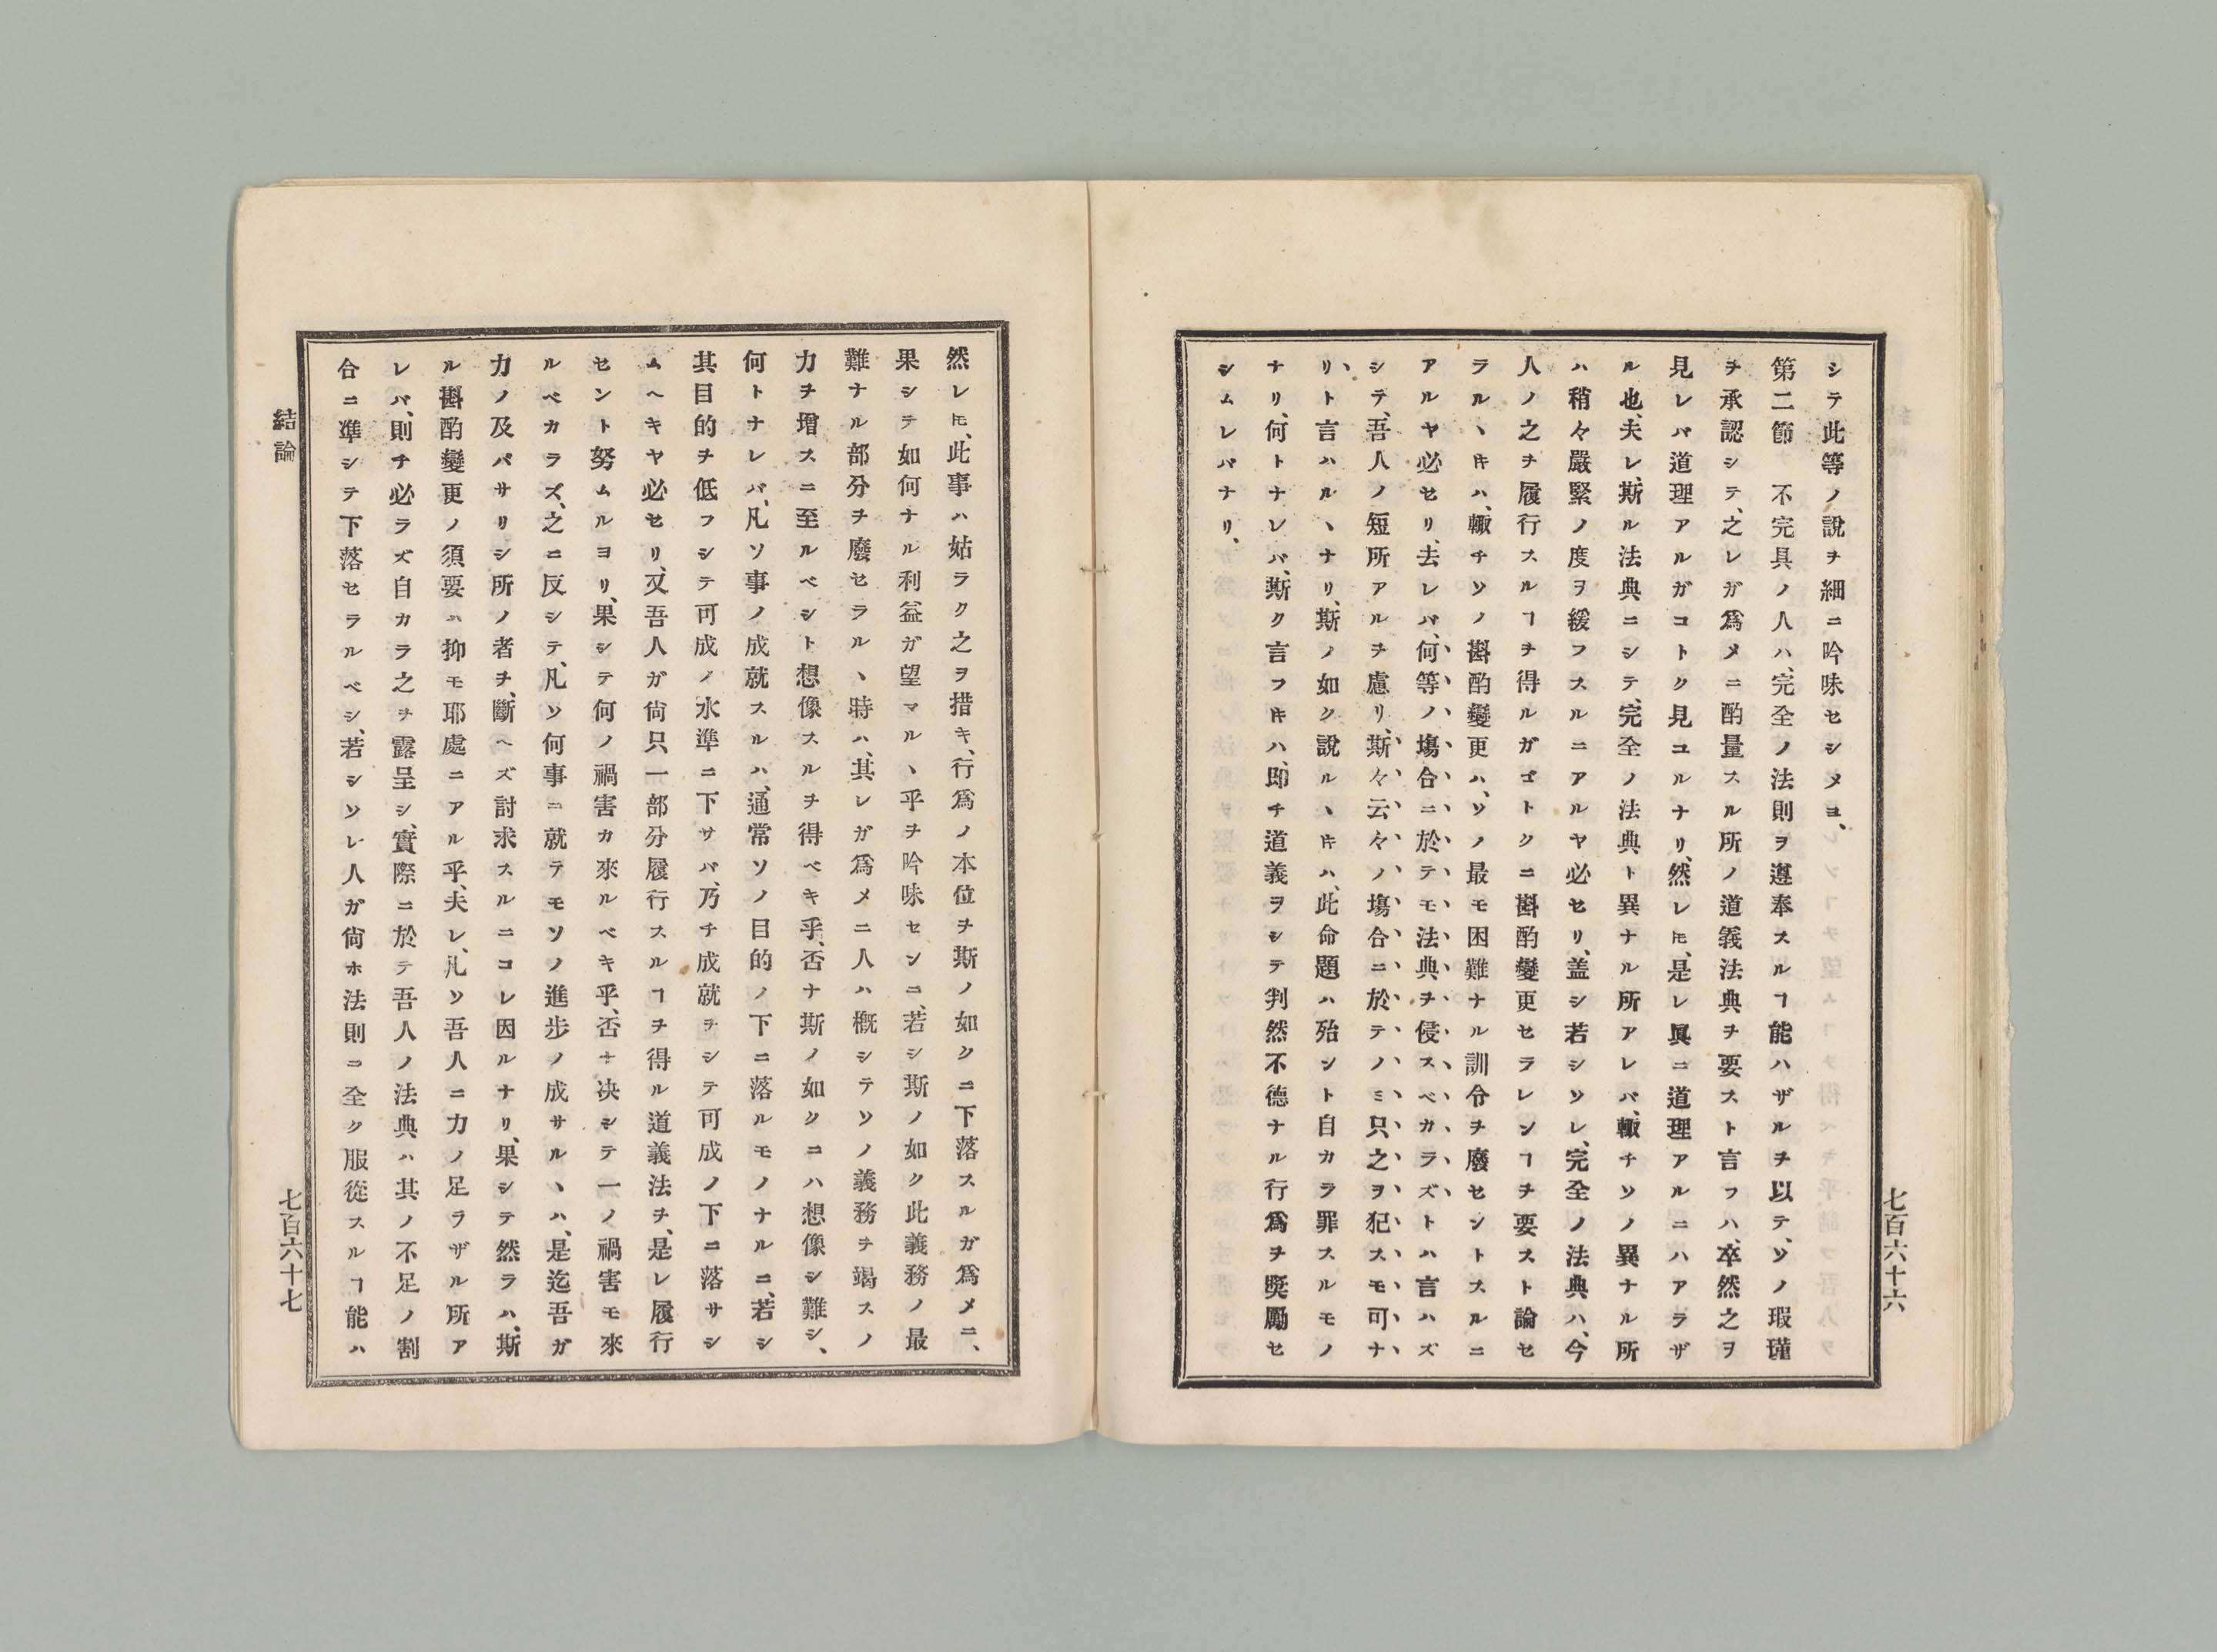 シテ此等ノ說ヲ細ニ吟味セシメヨ、
第二節　不完具ノ人ハ、完全ノ法則ヲ遵奉スルヿ能ハザルヲ以テ、ソノ瑕瑾
ヲ承認シテ、之レガ爲メニ酌量スル所ノ道義法典ヲ要スト言フハ、卒然之ヲ
見レバ道理アルガコトク見ユルナリ、然レ𪜈、是レ眞ニ道理アルニハアラザ
ル也、夫レ斯ル法典ニシテ、完全ノ法典ト異ナル所アレバ、輙チソノ異ナル所
ハ稍々嚴緊ノ度ヲ緩フスルニアルヤ必セリ、盖シ若シソレ、完全ノ法典ハ、今
人ノ之ヲ履行スルヿヲ得ルガゴトクニ斟酌變更セラレンヿヲ要スト論セ
ラルヽ𪜈ハ、輙チソノ斟酌變更ハ、ソノ最モ困難ナル訓令ヲ廢セントスルニ
アルヤ必セリ、去レバ、何等ノ塲合ニ於テモ法典ヲ侵スベカラズトハ言ハズ
シテ、吾人ノ短所アルヲ慮リ、斯々云々ノ塲合ニ於テノミ只之ヲ犯スモ可ナ
リト言ハルヽナリ、斯ノ如ク說ルヽ𪜈ハ、此命題ハ殆ント自カラ罪スルモノ
ナリ、何トナレバ、斯ク言フ𪜈ハ、卽チ道義ヲシテ判然不德ナル行爲ヲ奬勵セ
シムレバナリ、
七百六十六
然レ𪜈、此事ハ姑ラク之ヲ措キ、行爲ノ本位ヲ斯ノ如クニ下落スルガ爲メニ、
果シテ如何ナル利益ガ望マルヽ乎ヲ吟味センニ、若シ斯ノ如ク此義務ノ最
難ナル部分ヲ廢セラルヽ時ハ、其レガ爲メニ人ハ槪シテソノ義務ヲ竭スノ
力ヲ增スニ至ルベシト想像スルヲ得ベキ乎、否ナ斯ノ如クニハ想像シ難シ、
何トナレバ、凡ソ事ノ成就スルハ、通常ソノ目的ノ下ニ落ルモノナルニ、若シ
其目的ヲ低フシテ可成ノ水準ニ下サバ、乃チ成就ヲシテ可成ノ下ニ落サシ
ムヘキヤ必セリ、又吾人ガ尙只一部分履行スルヿヲ得ル道義法ヲ、是レ履行
セント努ムルヨリ、果シテ何ノ禍害カ來ルベキ乎、否ナ决シテ一ノ禍害モ來
ルベカラズ、之ニ反シテ、凡ソ何事ニ就テモソノ進步ノ成サルヽハ、是迄吾ガ
力ノ及パサリシ所ノ者ヲ、斷ヘズ討求スルニコレ因ルナリ、果シテ然ラハ、斯
ル斟酌變更ノ須要ハ抑モ耶處ニアル乎、夫レ、凡ソ吾人ニ力ノ足ラザル所ア
レバ、則チ必ラズ自カラ之ヲ露呈シ、實際ニ於テ吾人ノ法典ハ其ノ不足ノ割
合ニ準シテ下落セラルベシ、若シソレ人ガ尙ホ法則ニ全ク服從スルヿ能ハ
結論
七百六十七